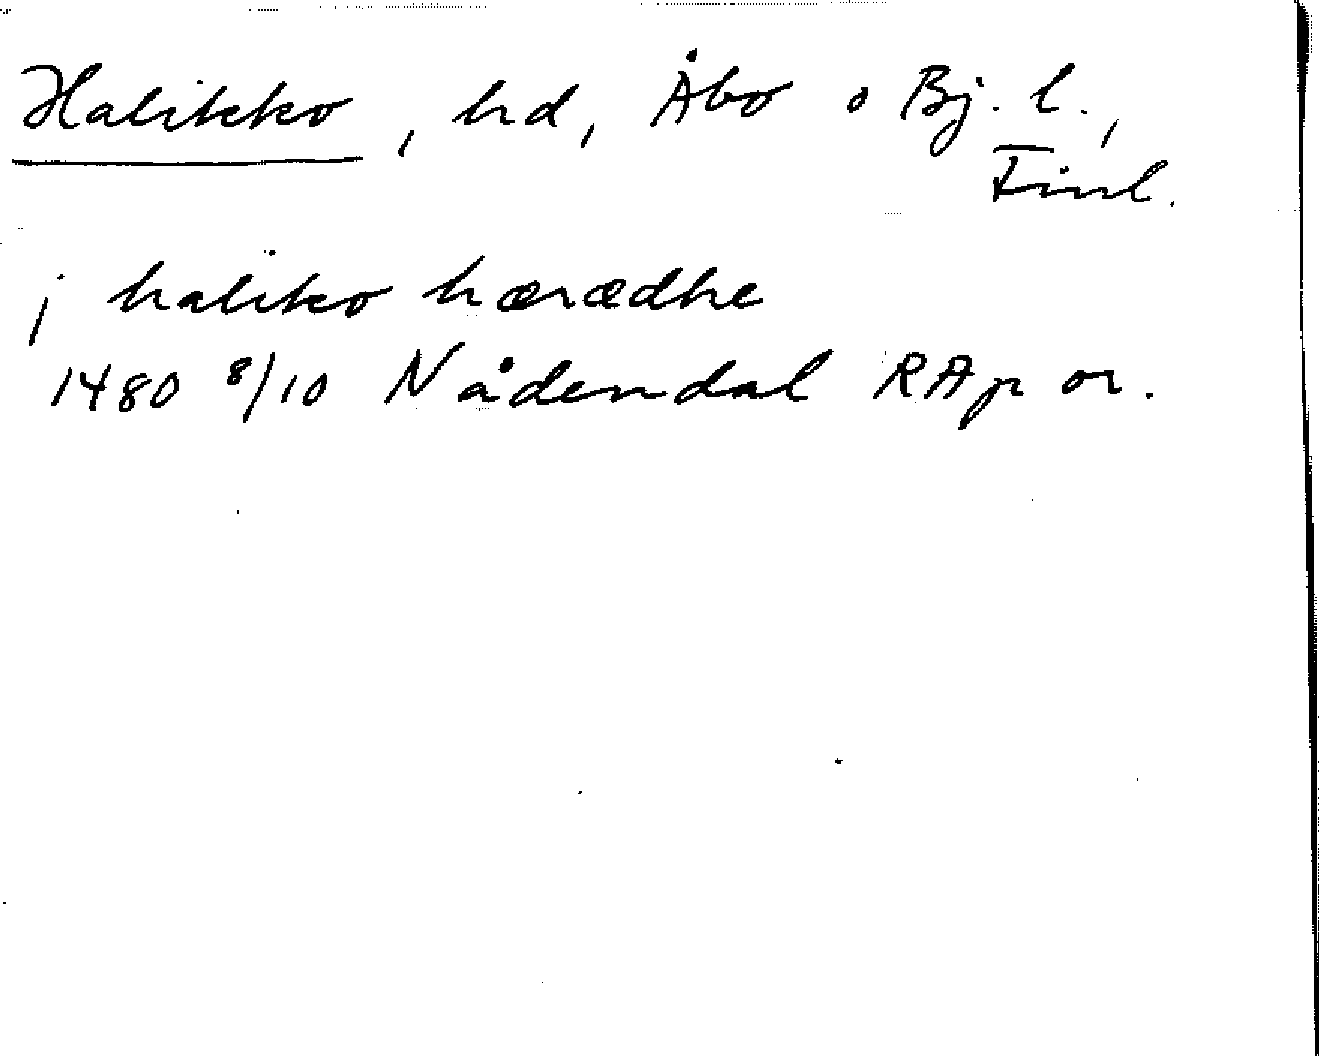 Halikko, hd, Åbo o Bj. l.,
Finl.
j haliko hærædhe
1480 8/10 Nådendal RAp or.